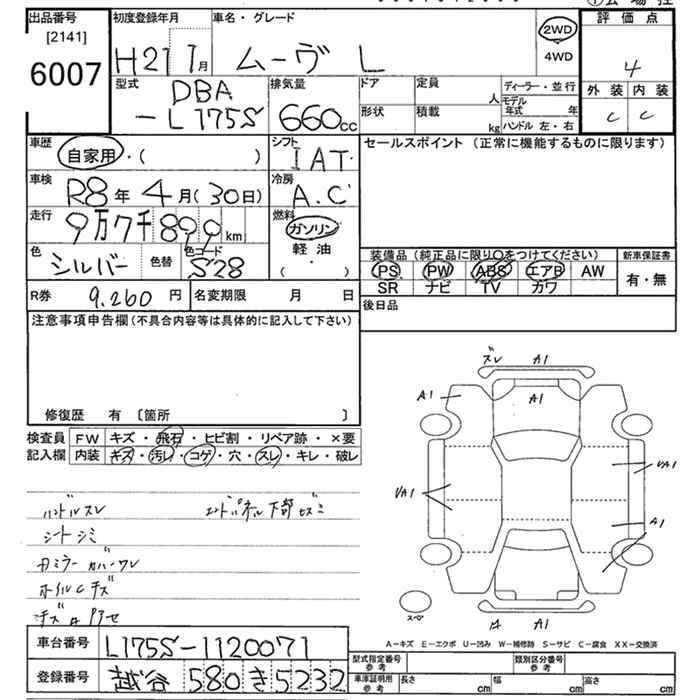 出品番号 初度登録年月 車名・グレード 2WD 評価点
[2141] 4WD
6007 H21 1月 ムーヴ L 4
型式 排気量 ドア 定員 ディーラー・並行 外装 内装
DBA 人 モデル年式 年 C C
-L175S 660cc 形状 積載 kg ハンドル 左・右
車歴 シフト セールスポイント (正常に機能するものに限ります)
自家用・( ) IAT
車検 冷房
R8年 4月(30日) A.C
走行 燃料
9万7千890km ガソリン
色 色替 色コード 軽・油 装備品(純正品に限り○をつけてください) 新車保証書
シルバー S28 ・( ) PS PW ABS エアB AW 有・無
SR ナビ TV カワ
R券 9,260円 名変期限 月 日 後日品
注意事項申告欄(不具合内容等は具体的に記入して下さい)
ズレ A1
A1 A1
修復歴 有 〔箇所 〕
検査員 FW キズ・飛石・ヒビ割・リペア跡・×要
記入欄 内装 キズ・汚レ・コゲ・穴・スレ・キレ・破レ
UA1
UA1
A1
ハンドルスレ エンドパネル下部
シートシミ
ドアミラーカバーワレ
ホイルCキズ
スペア
A1
車台番号 L175S-1120071
A-キズ E-エクボ U-凹み W-補修跡 S-サビ C-腐食 XX-交換済
型式指定番号 参考 類別区分番号 参考
登録番号 越谷 580 き 5232
車庫証明用 参考 長さ cm 幅 cm 高さ cm